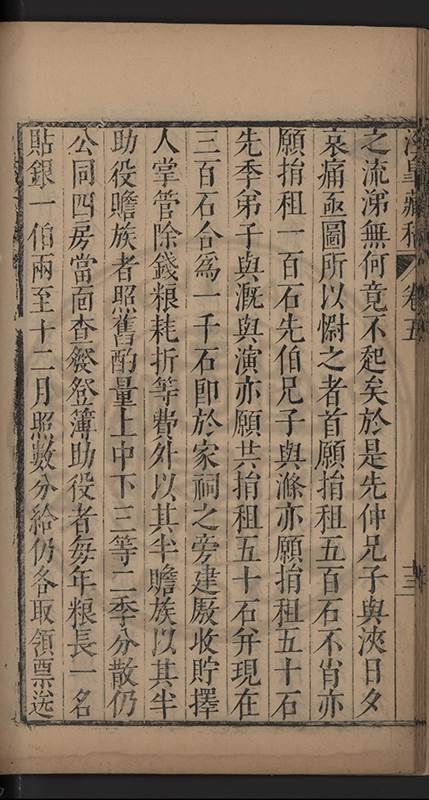 涇臯藏稿 卷五 十三
之流涕無何竟不起矣於是先仲兄子與浹日夕
哀痛亟圖所以慰之者首願捐租五百石不肖亦
願捐租一百石先伯兄子與滌亦願捐租五十石
先季弟子與溉與演亦願共捐租五十石幷現在
三百石合爲一千石卽於家祠之旁建厫收貯擇
人掌管除錢粮耗折等費外以其半贍族以其半
助役贍族者照舊酌量上中下三等二季分散仍
公同四房當面查發登簿助役者每年粮長一名
貼銀一伯兩至十二月照數分給仍各取領票送